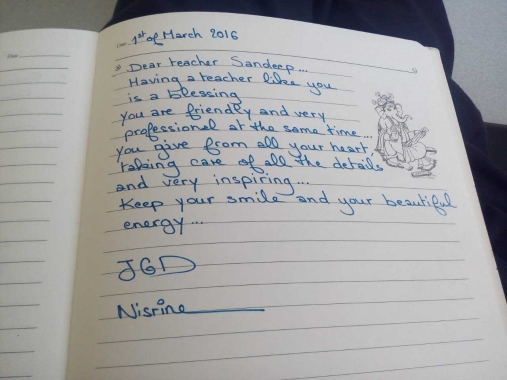 Date 1st of March 2016
Dear teacher Sandeep...
Having a teacher like you
is a blessing
you are friendly and very
professional at the same time...
you give from all your heart
taking care of all the details
and very inspiring...
Keep your smile and your beautiful
energy...
JGD
Nisrine